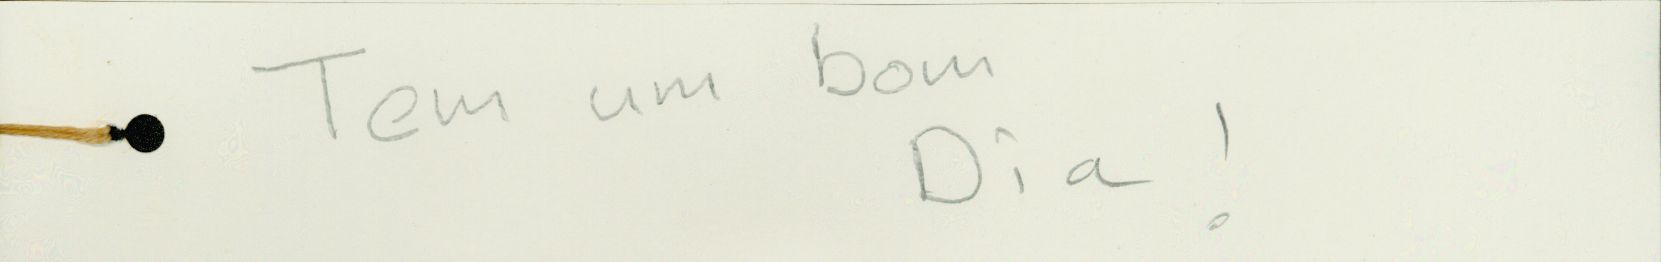 Tem um bom
Dia!